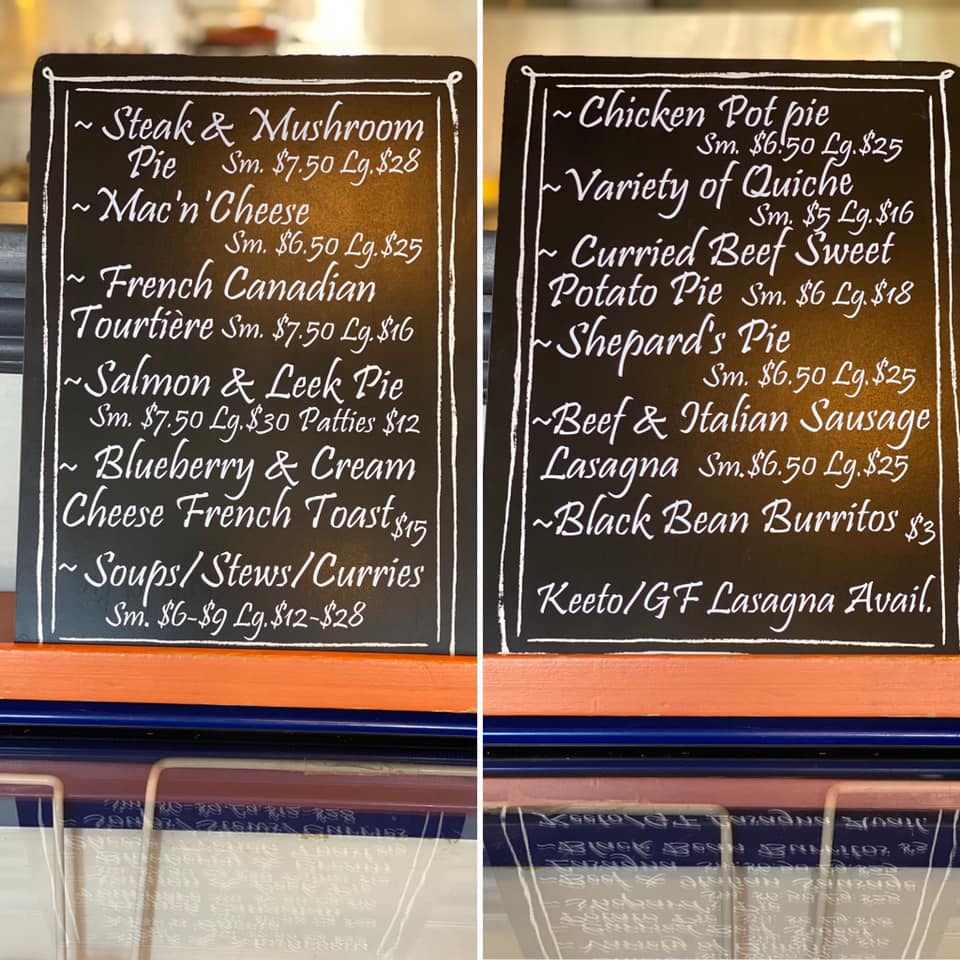 ~ Steak & Mushroom
Pie Sm. $7.50 Lg.$28
~ Mac'n'Cheese
Sm. $6.50 Lg.$25
~ French Canadian
Tourtière Sm. $7.50 Lg.$16
~Salmon & Leek Pie
Sm. $7.50 Lg.$30 Patties $12
~ Blueberry & Cream
Cheese French Toast $15
~ Soups/Stews/Curries
Sm. $6-$9 Lg.$12-$28
~Chicken Pot pie
Sm. $6.50 Lg.$25
~Variety of Quiche
Sm. $5 Lg.$16
~ Curried Beef Sweet
Potato Pie Sm. $6 Lg.$18
~Shepard's Pie
Sm. $6.50 Lg.$25
~Beef & Italian Sausage
Lasagna Sm.$6.50 Lg.$25
~Black Bean Burritos $3
Keeto/GF Lasagna Avail.